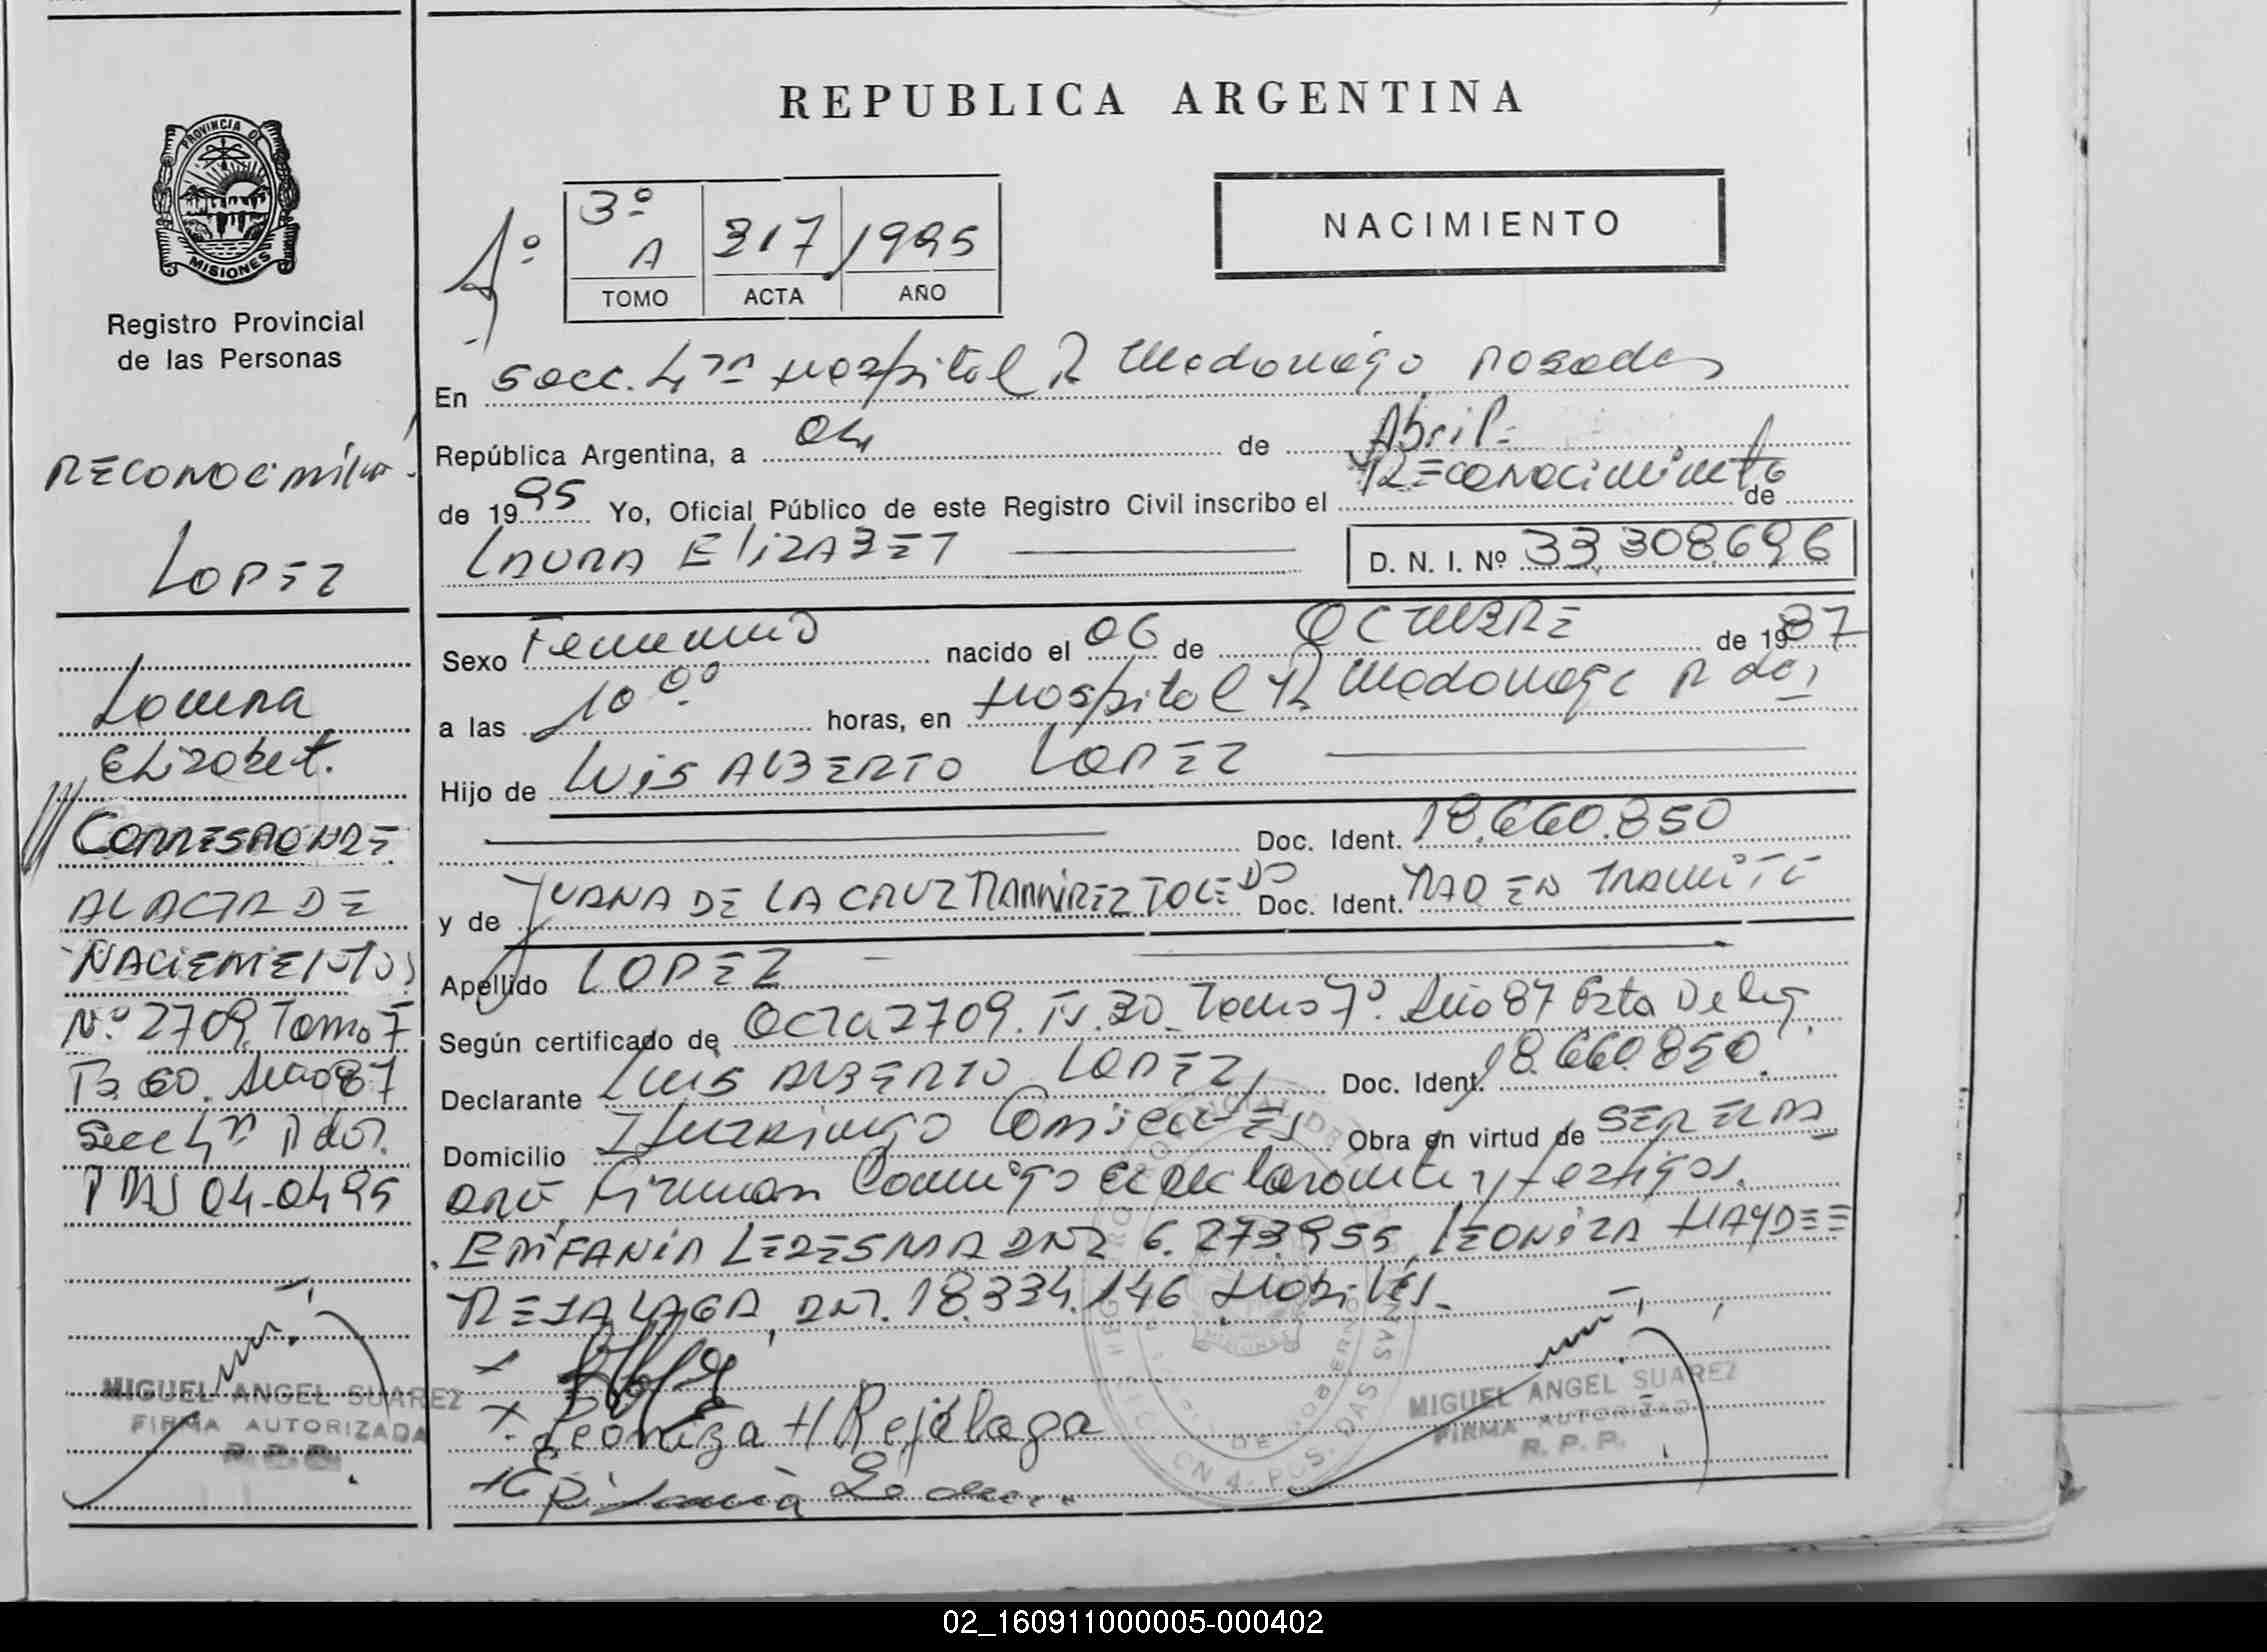 REPUBLICA ARGENTINA
PROVINCIA DE
MISIONES
Registro Provincial
de las Personas
3º
A 317 1995
TOMO ACTA AÑO
NACIMIENTO
En Secc. 4ta Hospital R Madariaga Posadas
República Argentina, a 04 de Abril
de 1995 Yo, Oficial Público de este Registro Civil inscribo el Reconocimiento de
LAURA ELIZABET D. N. I. Nº 33.308.696
Sexo Femenino nacido el 06 de OCTUBRE de 1987
a las 10 00 horas, en Hospital R Madariaga Pdas
Hijo de LUIS ALBERTO LOPEZ
Doc. Ident. 18.660.850
y de JUANA DE LA CRUZ RAMIREZ TOLEDO Doc. Ident. RAD EN TRAMITE
Apellido LOPEZ
Según certificado de Acta 2709. Fs. 30. Tomo 7º. Año 87 Esta Deleg.
Declarante LUIS ALBERTO LOPEZ Doc. Ident. 18.660.850.
Domicilio Obra en virtud de SER EL PA
DRE Firman Conmigo el declarante y testigos.
EPIFANIA LEDESMA DNI 6.273.955, LEONIZA HAYDEE
REJALAGA, DNI. 18.334.146 Hábiles.
x
x Leoniza H Rejálaga
x Epifania
MIGUEL ANGEL SUAREZ
FIRMA AUTORIZADA
R. P. P.
RECONOCIMIENTO
LOPEZ
Elizabet.
CORRESPONDE
AL ACTA DE
NACIEMIENTOS
Nº 2709, Tomo 7
Año 87
Secc 4ta Pdas.
PDAS 04-04-95
MIGUEL ANGEL SUAREZ
FIRMA AUTORIZADA
R. P. P.
02_160911000005-000402